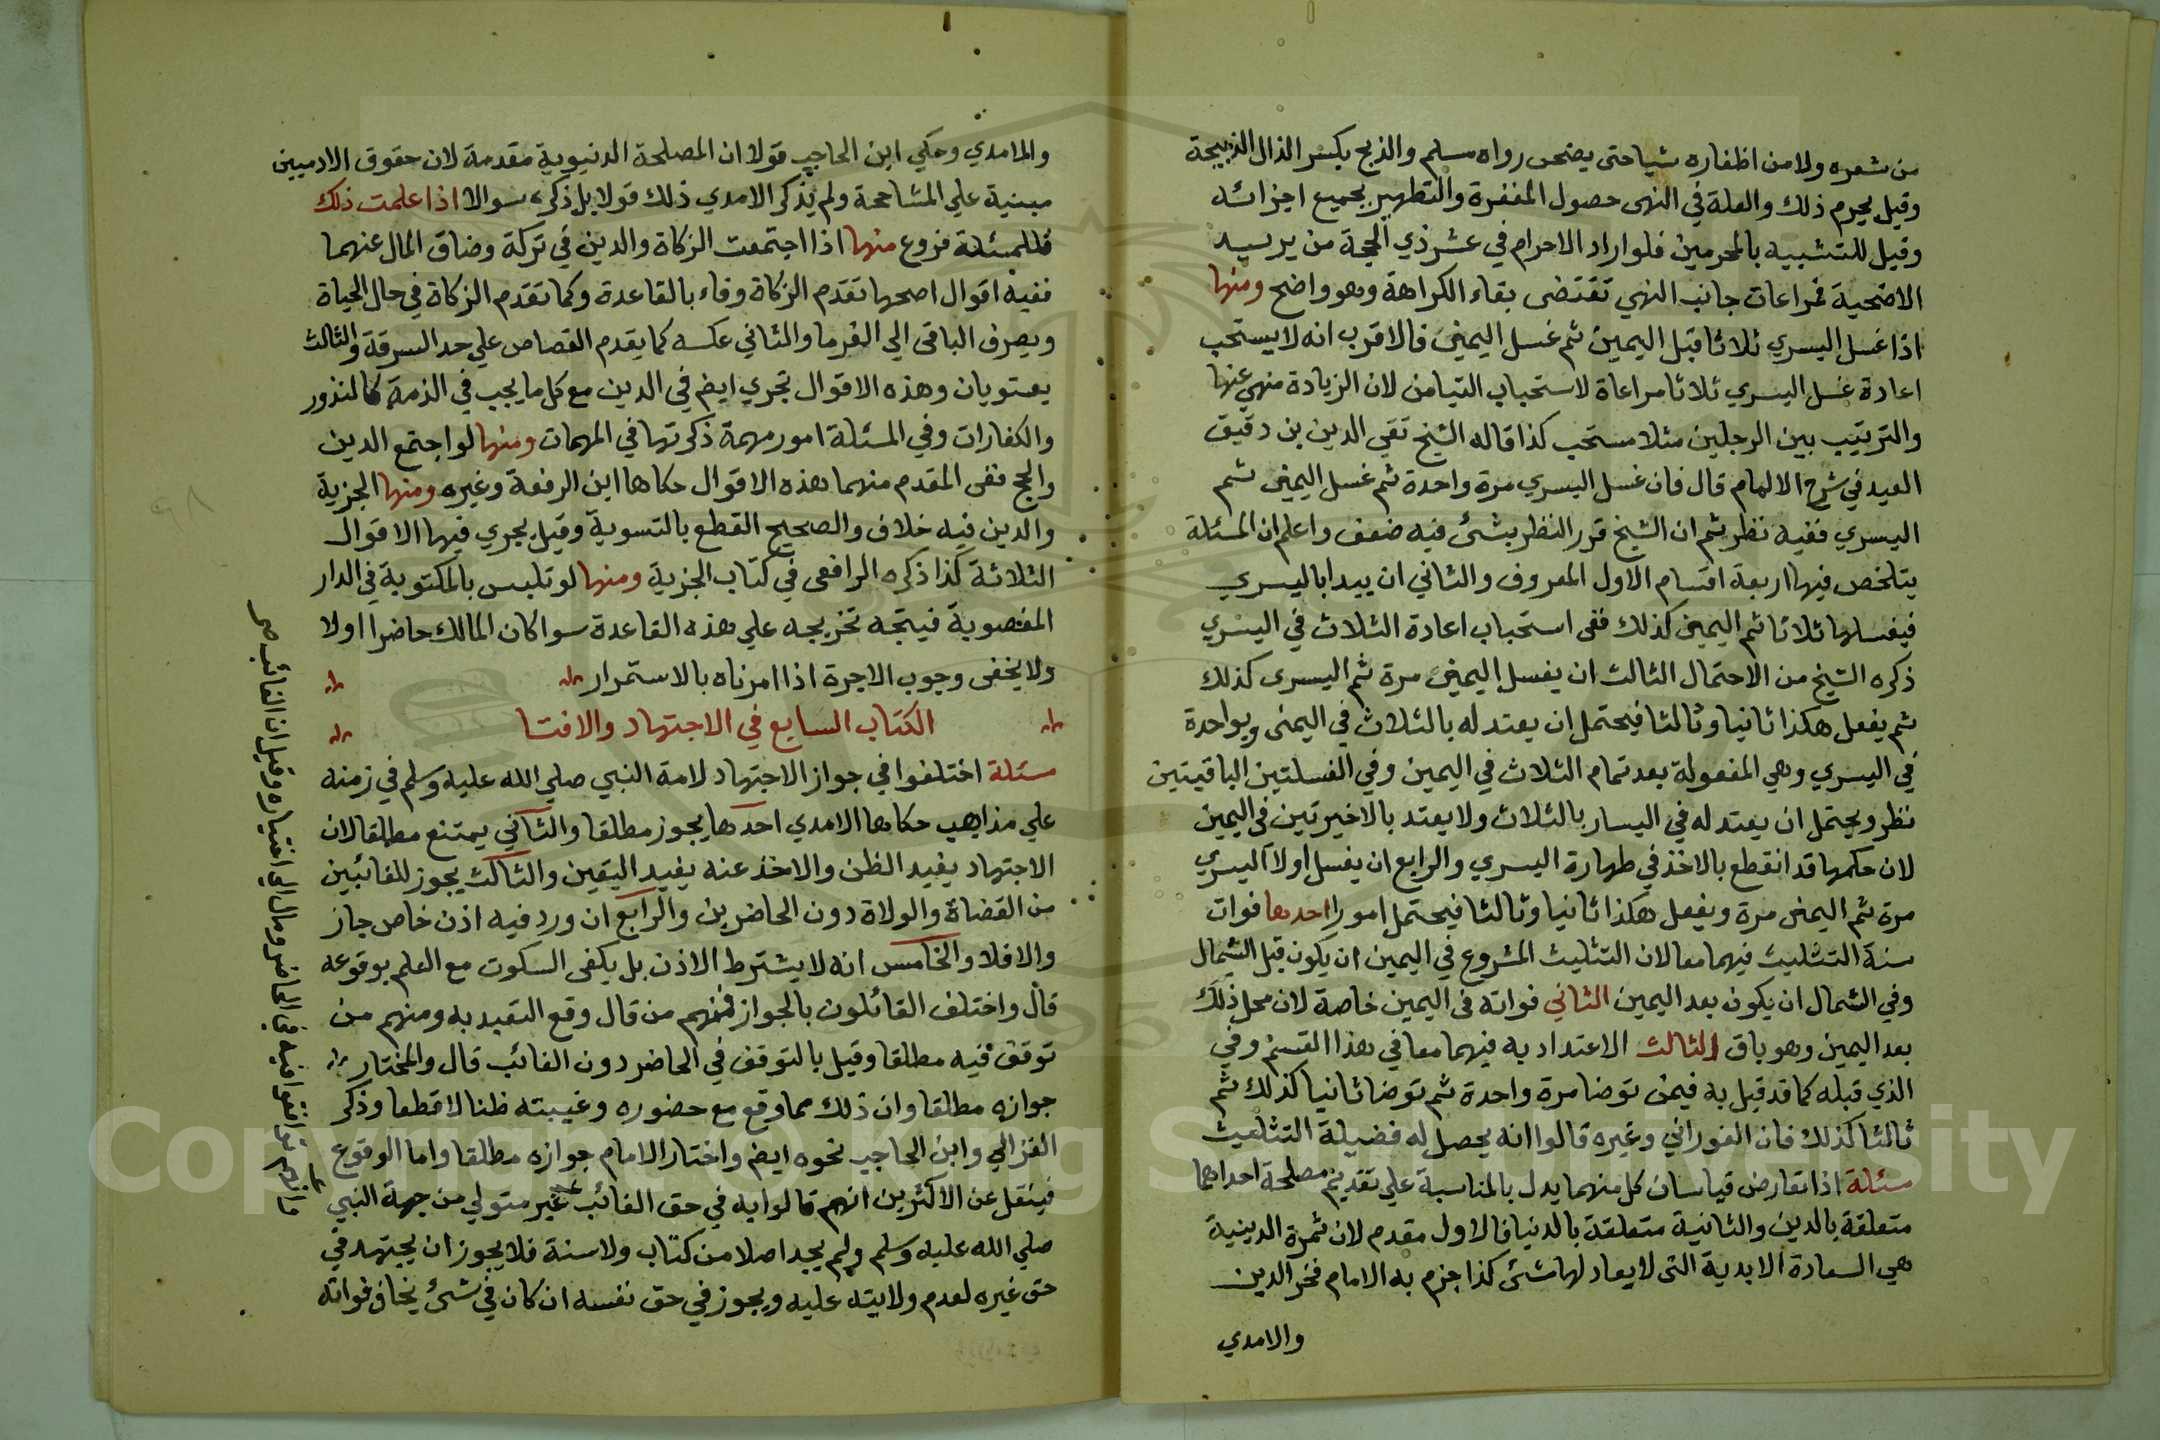 من شعره ولا من اظفاره شيا حتى يضحى رواه مسلم والذبح بكسر الذال الذبيحة
وقيل يحرم ذلك والعلة في النهى حصول المغفرة والتطهير بجميع اجزائه
وقيل للتشبيه بالمحرمين فلو اراد الاحرام في عشر ذي الحجة من يريد
الاضحية فمراعات جانب النهي تقتضى بقاء الكراهة وهو واضح ومنها
اذا غسل اليسري ثلاثا قبل اليمين ثم غسل اليمنى فالاقرب انه لا يستحب
اعادة غسل اليسري ثلاثا مراعاة لاستحباب التيامن لان الزيادة منهي عنها
والترتيب بين الرجلين مثلا مستحب كذا قاله الشيخ تقي الدين بن دقيق
العيد في شرح الالمام قال فان غسل اليسري مرة واحدة ثم غسل اليمنى ثم
اليسري ففيه نظر ثم ان الشيخ قرر النظر بشئ فيه ضعف واعلم ان المسئلة
يتلخص فيها اربعة اقسام الاول المعروف والثاني ان يبدا باليسري
فيغسلها ثلاثا ثم اليمين كذلك ففى استحباب اعادة الثلاث في اليسري
ذكره الشيخ من الاحتمال الثالث ان يغسل اليمنى مرة ثم اليسرى كذلك
ثم يفعل هكذا ثانيا وثالثا فيحتمل ان يعتد له بالثلاث في اليمنى وبواحدة
في اليسري وهي المفعولة بعد تمام الثلاث في اليمين وفي الغسلتين الباقيتين
نظر ويحتمل ان يعتد له في اليسار بالثلاث ولا يعتد بالاخيرتين فى اليمين
لان حكمها قد انقطع بالاخذ في طهارة اليسري والرابع ان يغسل اولا اليسري
مرة ثم اليمنى مرة ويفعل هكذا ثانيا وثالثا فيحتمل امورا احدها فوات
سنة التثليث فيهما معا لان التثليث المشروع في اليمين ان يكون قبل الشمال
وفي الشمال ان يكون بعد اليمين الثاني فواته فى اليمين خاصة لان محل ذلك
بعد اليمين وهو باق الثالث الاعتداد به فيهما معا في هذا القسم وفي
الذي قبله كما قد قيل به فيمن توضا مرة واحدة ثم توضا ثانيا كذلك ثم
ثالثا كذلك فان الفوراني وغيره قالوا انه يحصل له فضيلة التثليث
مسئلة اذا تعارض قياسان كل منهما يدل بالمناسبة على تقديم مصلحة احداهما
متعلقة بالدين والثانية متعلقة بالدنيا فالاول مقدم لان ثمرة الدينية
هي السعادة الابدية التى لا يعادلها شئ كذا جزم به الامام فخر الدين
والامدي
والامدي وحكي ابن الحاجب قولا ان المصلحة الدنيوية مقدمة لان حقوق الادميين
مبنية علي المشاححة ولم يذكر الامدي ذلك قولا بل ذكره سوالا اذا علمت ذلك
فللمسئلة فروع منها اذا اجتمعت الزكاة والدين في تركة وضاق المال عنهما
ففيه اقوال اصحها تقدم الزكاة وفاء بالقاعدة وكما تقدم الزكاة في حال الحياة
ويصرف الباقى الي الغرما والثاني عكسه كما يقدم القصاص علي حد السرقة والثالث
يستويان وهذه الاقوال تجري ايض في الدين مع كل ما يجب في الذمة كالنذور
والكفارات وفي المسئلة امور مهمة ذكرتها في المهمات ومنها لو اجتمع الدين
والحج ففى المقدم منهما هذه الاقوال حكاها ابن الرفعة وغيره ومنها الجزية
والدين فيه خلاف والصحيح القطع بالتسوية وقيل يجري فيها الاقوال
الثلاثة كذا ذكره الرافعى في كتاب الجزية ومنها لو تلبس بالمكتوبة في الدار
المغصوبة فيتجه تخريجه علي هذه القاعدة سوا كان المالك حاضرا اولا
ولا يخفى وجوب الاجرة اذا امرناه بالاستمرار
الكتاب السابع في الاجتهاد والافتا
مسئلة اختلفوا في جواز الاجتهاد لامة النبي صلي الله عليه وسلم في زمنه
علي مذاهب حكاها الامدي احدها يجوز مطلقا والثاني يمتنع مطلقا لان
الاجتهاد يفيد الظن والاخذ عنه يفيد اليقين والثالث يجوز للغائبين
من القضاة والولاة دون الحاضرين والرابع ان ورد فيه اذن خاص جاز
والا فلا والخامس انه لا يشترط الاذن بل يكفى السكوت مع العلم بوقوعه
قال واختلف القائلون بالجواز فمنهم من قال وقع التعبد به ومنهم من
توقف فيه مطلقا وقيل بالتوقف في الحاضر دون الغائب قال والمختار
جوازه مطلقا وان ذلك مما وقع مع حضوره وغيبته ظنا لا قطعا وذكر
الغزالي وابن الحاجب نحوه ايض واختار الامام جوازه مطلقا واما الوقوع
فينقل عن الاكثرين انهم قالوا به في حق الغائب غير متولي من جهة النبي
صلي الله عليه وسلم ولم يجد اصلا من كتاب ولا سنة فلا يجوز ان يجتهد في
حق غيره لعدم ولايته عليه ويجوز في حق نفسه ان كان في شئ يخاف فواته
Copyright © King Saud University